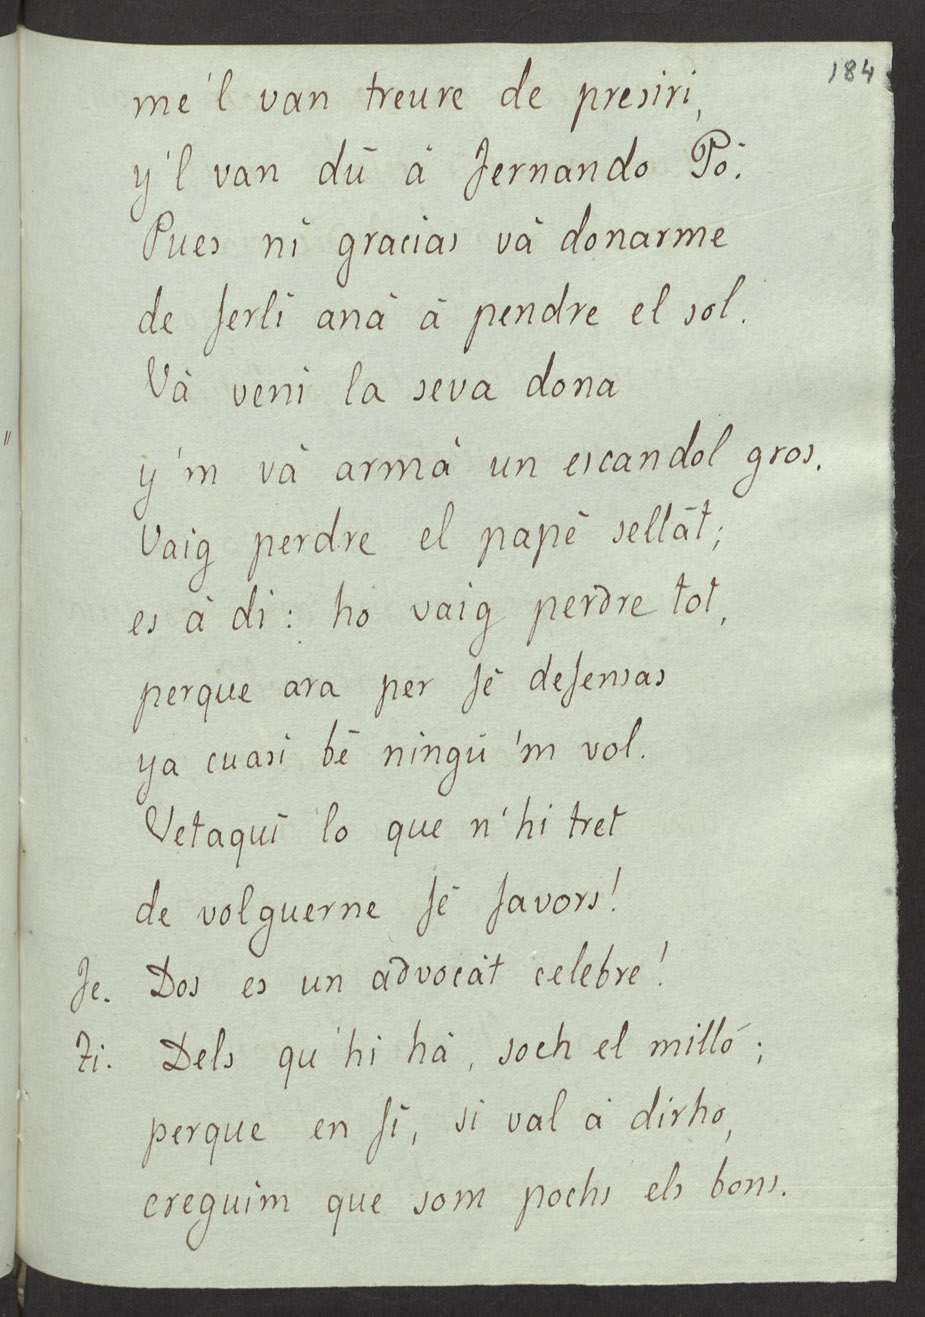 184
me 'l van treure de presiri,
y 'l van dú á Fernando Pó.
Pues ni gracias vá donarme
de ferli aná á pendre el sol.
Vá veni la seva dona
y 'm vá armá un escandol gros.
Vaig perdre el papé sellát;
es á di: ho vaig perdre tot,
perque ara per fé defensas
ya cuasi bé ningú 'm vol.
Vetaquí lo que n' hi tret
de volguerne fé favors!
Fe. Dos es un advocát celebre!
Ti. Dels qu' hi há, soch el milló;
perque en fí, si val á dirho,
creguim que som pochs els bons.